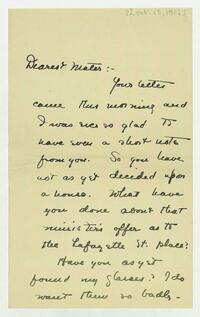 [Oct. 13, 1916]
Dearest Mater:-
Your letter
came this morning and
I was ever so glad to
have even a short note
from you. So you have
not as yet decided upon
a house. What have
you done about that
minister's offer as to
the Lafayette St. place?
Have you as yet
found my glasses? I do
want them so badly-